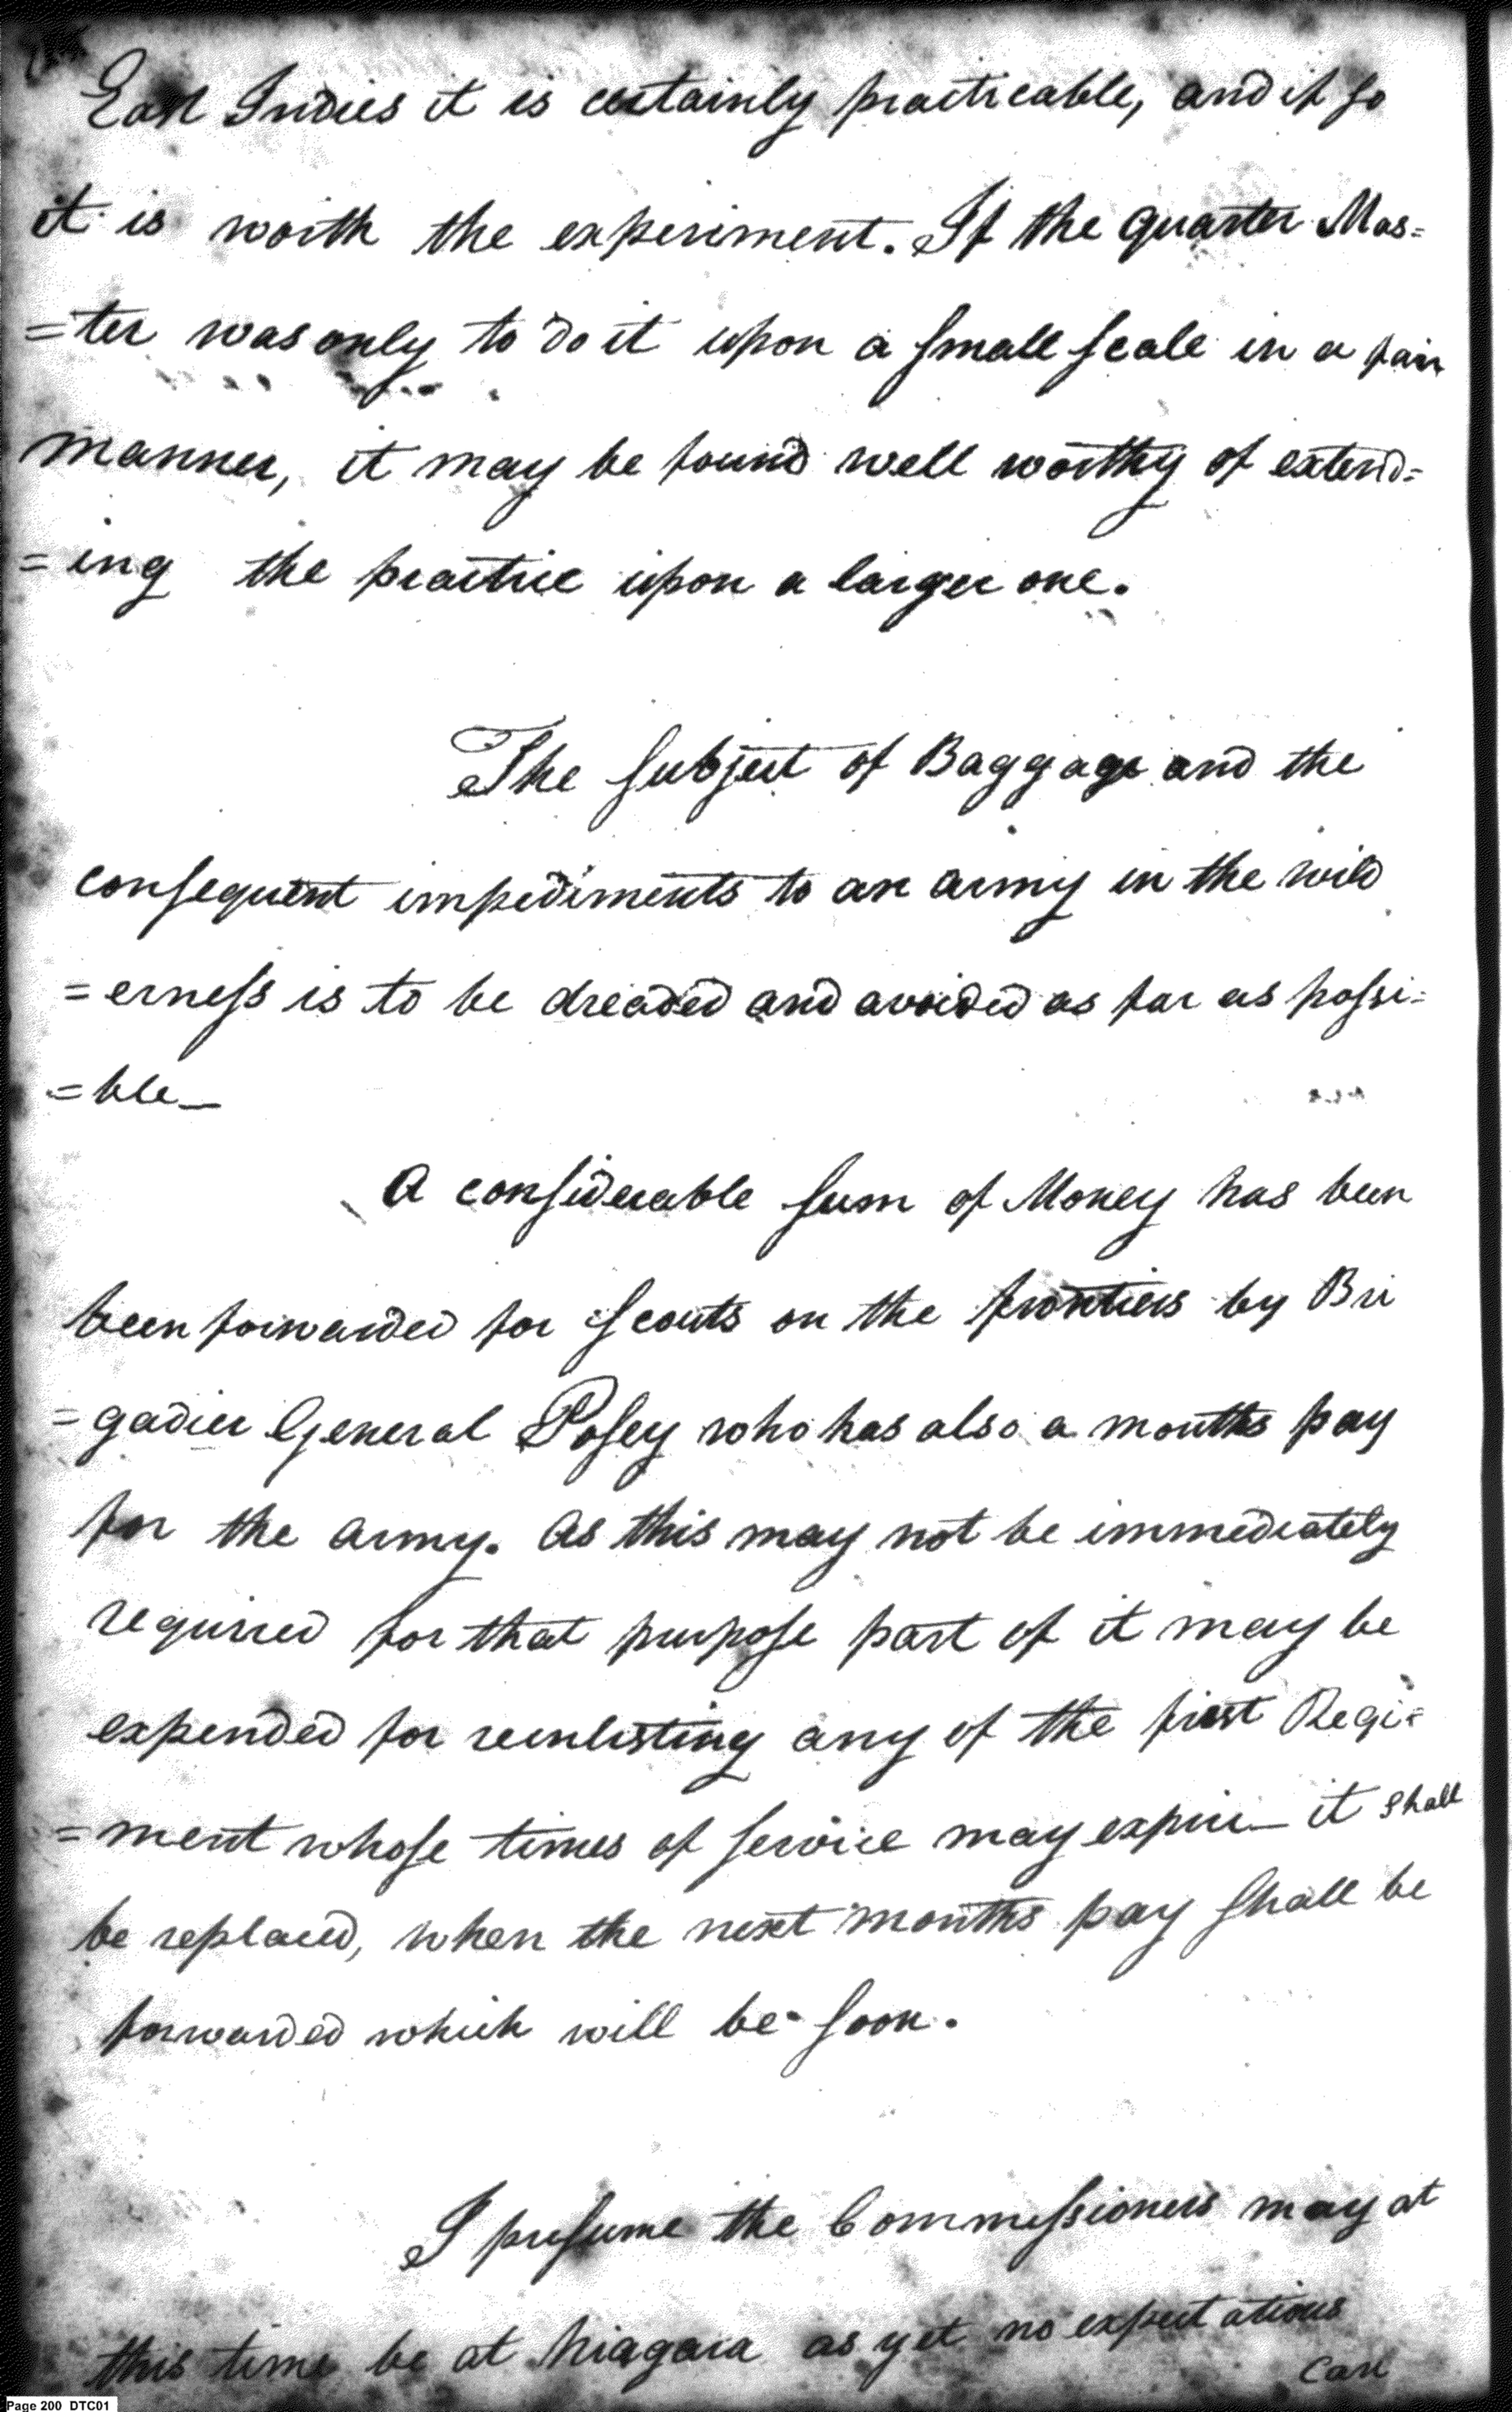 East Indies it is certainly practicable, and if so
it is worth the experiment. If the quarter Mas=
=ter was only to do it upon a small scale in a fair
manner, it may be found well worthy of extend=
=ing the practice upon a larger one.
The subject of Baggage and the
consequent impediments to an army in the wild
=erness is to be dreaded and avoided as far as possi=
=ble_
A considerable sum of Money has been
been forwarded for scouts on the frontiers by Bri
=gadier General Posey who has also a months pay
for the army. As this may not be immediately
required for that purpose part of it may be
expended for reenlisting any of the first Regi=
=ment whose times of service may expire_ it shall
be replaced, when the next months pay shall be
forwarded which will be soon.
I presume the Commissioners may at
this time be at Niagara as yet no expectations
can
Page 200 DTC01